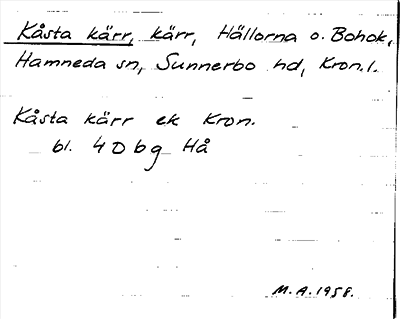 Kåsta kärr, kärr, Hällorna o. Bohok,
Hamneda sn, Sunnerbo hd, Kron.l.
Kåsta kärr ek Kron.
bl. 4 D b g Hå
M.A. 1958.